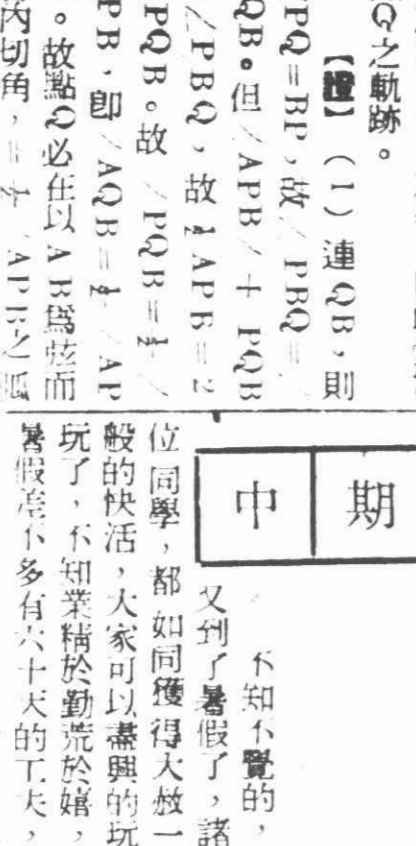 Q之軌跡。
【證】（1）連QB，則
PQ=BP，故∠PBQ=
QB。但∠APB∠+PQB
∠PBQ，故∠APB=2
PQB。故∠PQB=½∠
PB，即∠AQB=½∠AP
。故點Q必在以AB爲弦而
內切角，=½∠APB之弧
期中
不知不覺的，
又到了暑假了，諸
位同學，都如同獲得大赦一
般的快活，大家可以盡興的玩
玩了，不知業精於勤荒於嬉，
暑假差不多有六十天的工夫，